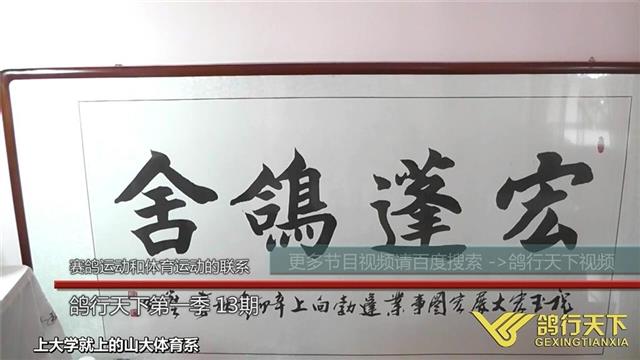 鸽行天下
GEXINGTIANXIA
宏蓬鸽舍
赛鸽运动和体育运动的联系
更多节目视频请百度搜索 ->鸽行天下视频
鸽行天下第一季 13期
上大学就上的山大体育系